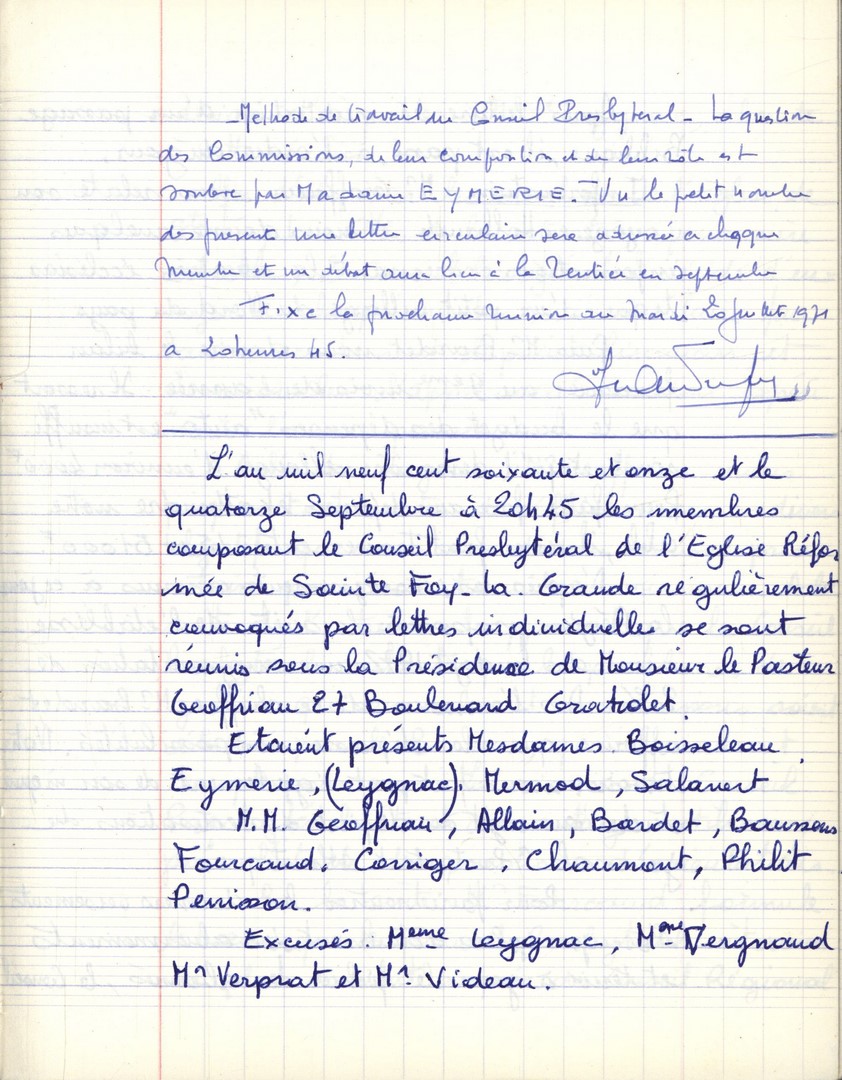 - Methode de travail du Conseil Presbyteral - La question
des Commissions, de leur composition et de leur rôle est
par Madame EYMERIE. - Vu le petit nombre
des presents une lettre circulaire sera adressée a chaque
membre et un débat aura lieu à la Rentrée en septembre
Fixe la prochaine reunion au Mardi 20 juillet 1971
a 20 heures 45.
L'an mil neuf cent soixante et onze et le
quatorze Septembre à 20h45 les membres
composant le Conseil Presbytéral de l'Eglise Réfor
mée de Sainte Foy-la. Grande régulièrement
convoqués par lettres individuelles se sont
réunis sous la Présidence de Monsieur le Pasteur
Geoffriau 27 Boulevard Gratiolet.
Etaient présents Mesdames. Boisseleau,
Eymerie, (Leygnac). Mermod, Salavert
M.M. Geoffriau, Allain, Bardet, Baussens
Fourcaud. Corriger, Chaumont, Philit
Penisson.
Excusés. Meme Leygnac, Mme Vergnaud
Mr Verprat et Mr Videau.